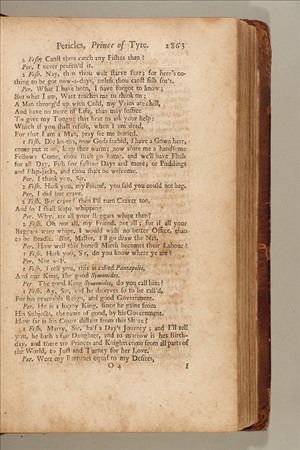 Pericles, Prince of Tyre. 2865
2 Fish. Canst thou catch any Fishes then?
Per. I never practis'd it.
2 Fish. Nay, then thou wilt starve sure; for here's no-
thing to be got now-a-days, unless thou canst fish for't.
Per. What I have been, I have forgot to know;
But what I am, Want teaches me to think on;
A Man throng'd up with Cold, my Veins are chill,
And have no more of Life, than may suffice
To give my Tongue that heat to ask your help:
Which if you shall refuse, when I am dead,
For that I am a Man, pray see me buried.
1 Fish. Die ke-tha, now Gods forbid, I have a Gown here,
come put it on, keep thee warm; now afore me a handsome
Fellow: Come, thou shalt go home, and we'll have Flesh
for all Day, Fish for fasting Days and more; or Puddings
and Flap-jacks, and thou shalt be welcome.
Per. I thank you, Sir.
2 Fish. Hark you, my Friend, you said you could not beg.
Per. I did but crave.
2 Fish. But crave? then I'll turn Craver too,
And so I shall scape whipping.
Per. Why, are all your Beggars whipt then?
2 Fish. Oh not all, my Friend, not all; for if all your
Beggars were whipt, I would wish no better Office, than
to be Beadle. But, Master, I'll go draw the Net.
Per. How well this honest Mirth becomes their Labour?
1 Fish. Hark you, Sir, do you know where ye are?
Per. Not well.
1 Fish. I tell you, this is called Pantapolis,
And our King, the good Symonides.
Per. The good King Symonides, do you call him?
1 Fish. Ay, Sir, and he deserves so to be call'd,
For his peaceable Reign, and good Government.
Per. He is a happy King, since he gains from
His Subjects, the name of good, by his Government.
How far is his Court distant from this Shore?
1 Fish. Marry, Sir, half a Day's Journey; and I'll tell
you, he hath a fair Daughter, and to morrow is her Birth-
day, and there are Princes and Knights come from all parts of
the World, to Just and Turney for her Love.
Per. Were my Fortunes equal to my Desires,
O 4 I